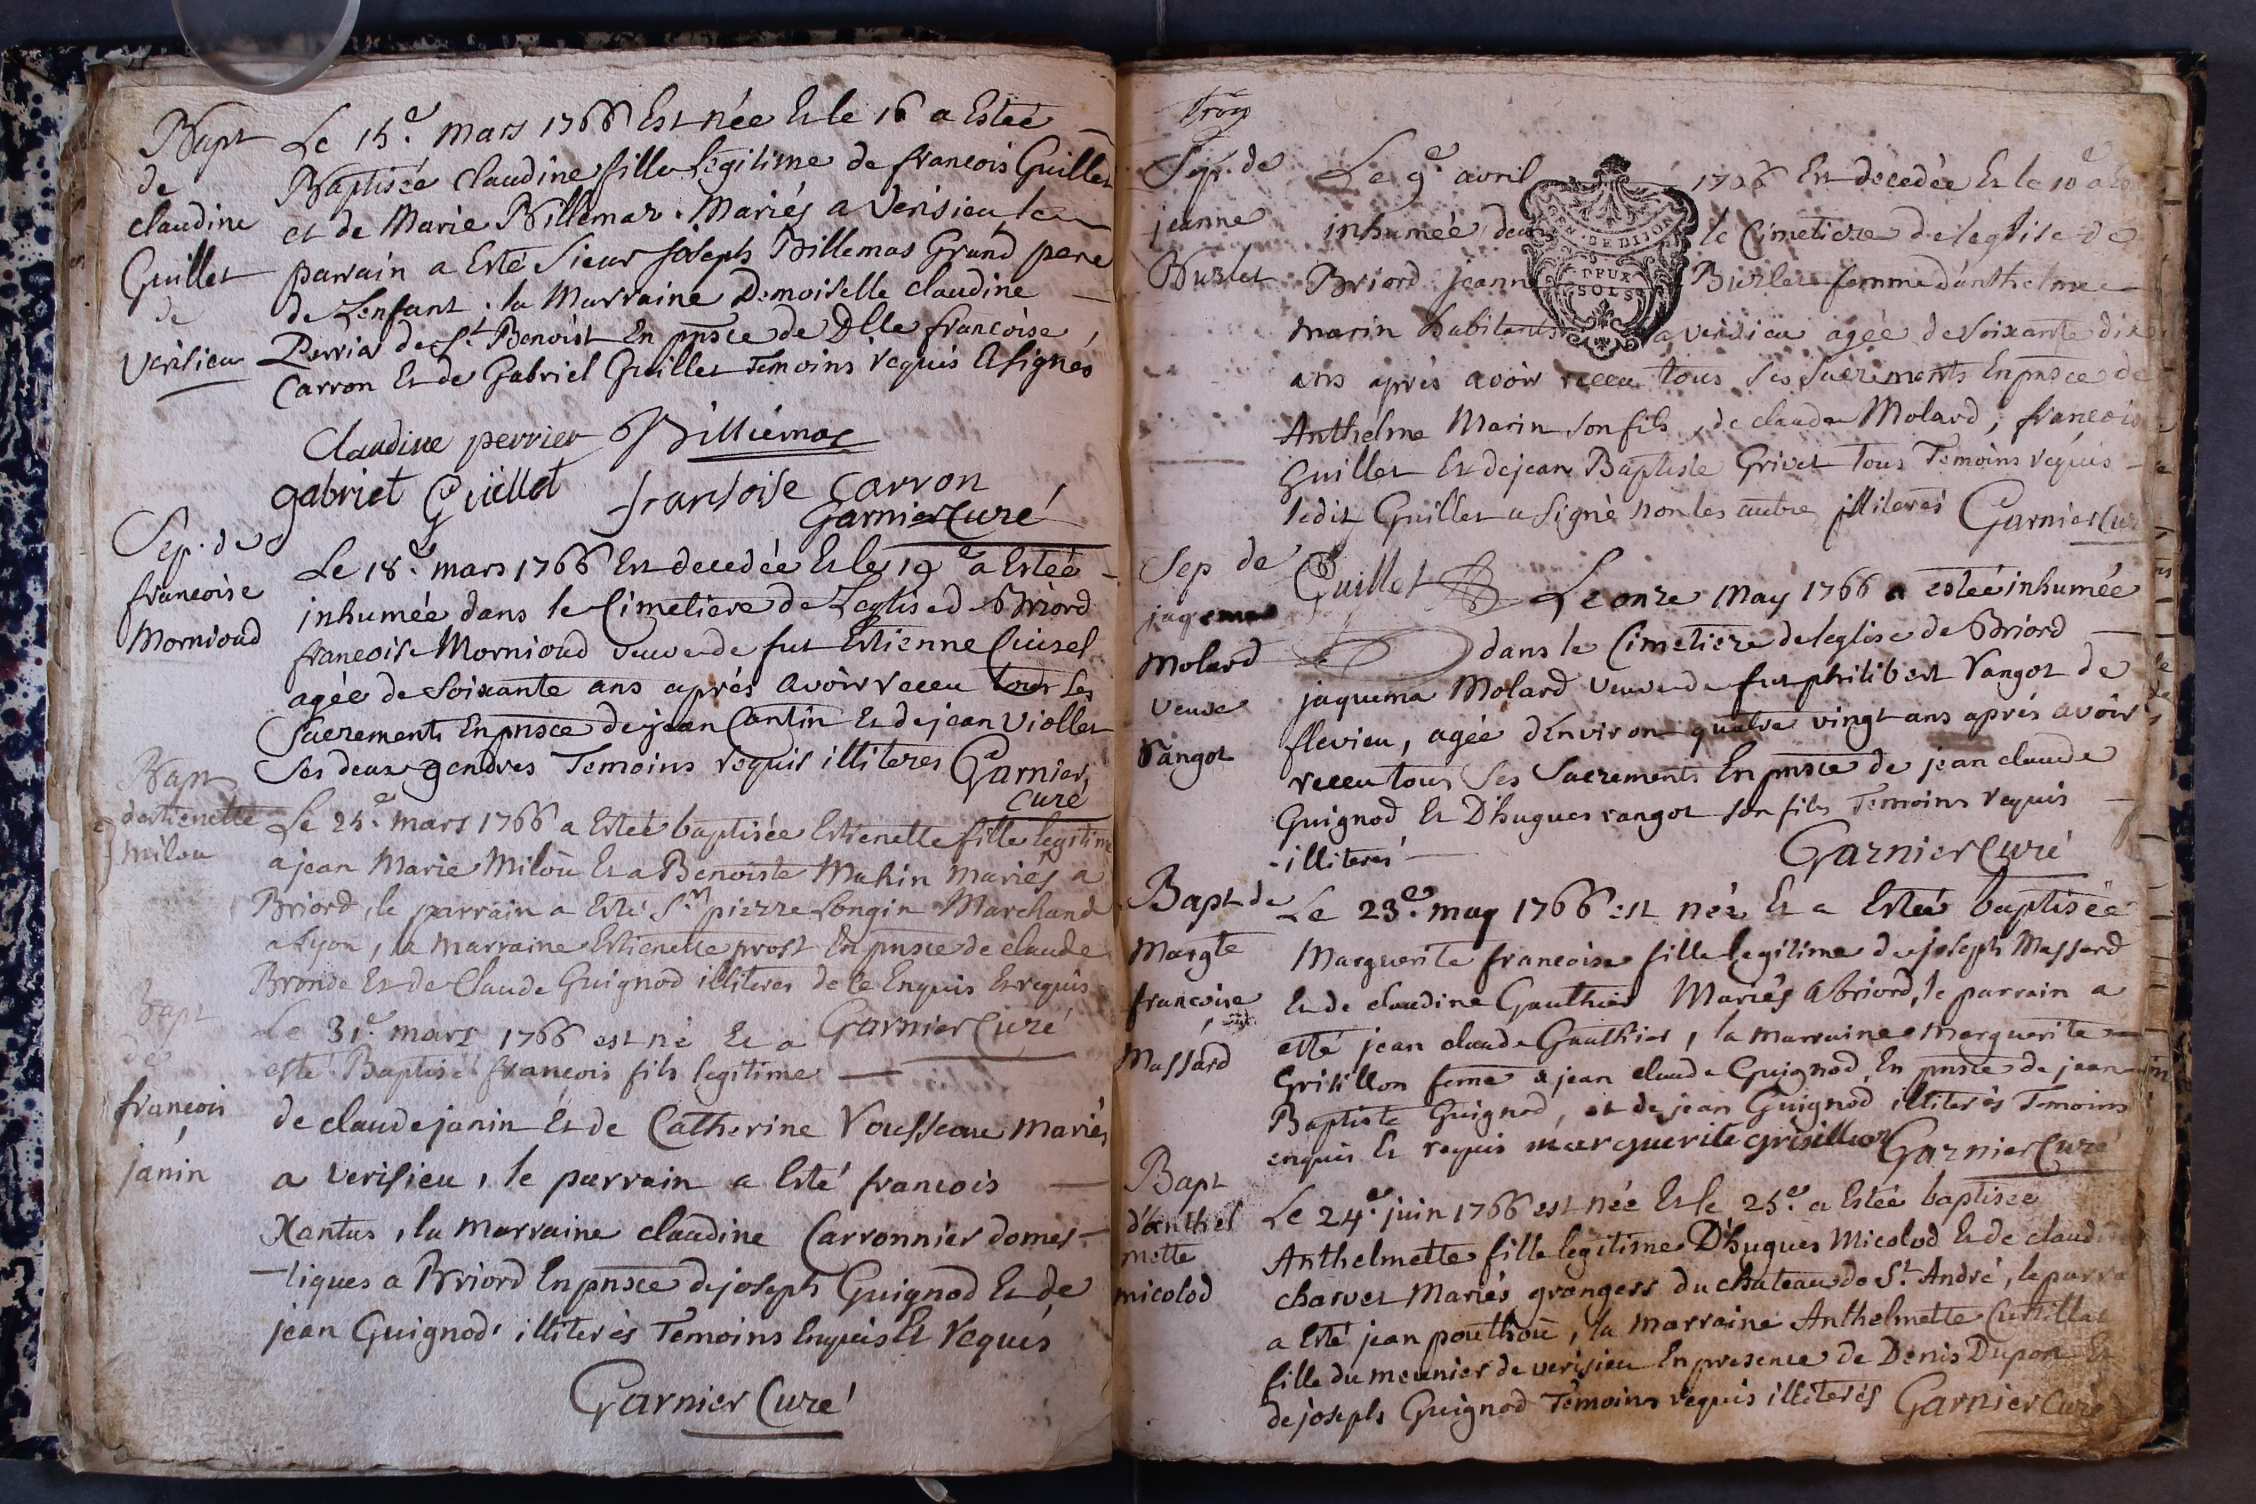 Bapt
de
claudine
Guillet
de
verisieu
Le 15.e mars 1766 Est née Et le 16 a Esteé
Baptisée claudine fille legitime de francois Guillet
et de Marie Billemaz. Mariés a Verisieu, le
parrain a Esté Sieur joseph Billemas Grand pere
de Lenfant, la Marraine Demoiselle claudine
Perrier de St. Benoist En pnsce de Dlle francoise
Carron Et de Gabriel Guillet Temoins requis Et signés
Claudine perrier Billiemas
gabriel Guillet fransoise carron
Garnier Curé
Sep. de
francoise
Mornioud
Le 18.e mars 1766 Est decedée Et le 19e a Esteé
inhumée dans le Cimetiere de Leglise d Briord
francoise Mornioud veuve de fut Estienne Cuisel
agée de Soixante ans aprés avoir receu tous ses
Sacrements En pnsce de jean Cantin Et de jean Viollet
Ses deux gendres Temoins requis illiteres Garnier
Curé
Bapt
destienette
milou
Le 25.e mars 1766 a Esteé baptisée Estienette fille legitime
a jean Marie Milou Et a Benoiste Mahin mariés a
Briord, le parrain a Esté Sr. pierre Longin Marchand
a Lyon, la marraine Estienette prost En pnsce de claude
Bronde Et de Claude Guignod illiteres de ce Enquis Et requis
Garnier Curé
Bapt
de
francois
janin
Le 31.e mars 1766 est né Et a
esté Baptisé francois fils legitime
de claude janin Et de Catherine Rousseau mariés
a verisieu, le parrain a Esté francois
Xantus, la marraine claudine Carronnier domes-
tiques a Briord En pnsce de joseph Guignod Et de
jean Guignod illiterés Temoins Enquis Et requis
Garnier Curé
trois
Sep. de
jeanne
Burlet
GEN. DE DIJON
DEUX
SOLS
Le 9.e avril 1766 Est decedée Et le 10e a
inhumée dans le Cimetiere de leglise de
Briord jeanne Burlet femme d'anthelme
marin habitants a verisieu agée de Soixante dix
ans aprés avoir receu tous ses Sacrements En pnsce de
Anthelme Marin son fils, de claude Molard, francois
Guillet Et de jean Baptiste Grivet tous Temoins requis
ledit Guillet a signé non les autre illiterés Garnier Curé
Guillet
Sep de
jaquema
Molard
veuve
Vangot
Le onze May 1766 a estée inhumée
dans le Cimetiere de leglise de Briord
jaquema Molard veuve de fut philibert Vangot de
flevieu, agée d'Environ quatre vingt ans aprés avoir
receu tous Ses Sacrements En pnsce de jean claude
Guignod Et D'hugues vangot son fils Temoins requis
illiteres
Garnier Curé
Bapt de
Margte
francoise
Massard
Le 23.e may 1766 est née Et a Esteé baptisée
Marguerite francoise fille legitime de joseph Massard
Et de claudine Gauthier Mariés a briord, le parrain a
esté jean claude Gauthier, la marraine marguerite
Grisillon feme a jean claude Guignod En pnsce de jean
Baptiste Guignod, et de jean Guignod illiterés Temoins
enquis Et requis marguerite grisillon Garnier Curé
Bapt
d'Anthel
mette
micolod
Le 24.e juin 1766 est née Et le 25.e a Estée baptisée
Anthelmette fille legitime D'hugues Micolod Et de claudine
charvet Mariés grangers du chateau de St. André, le parra
a Esté jean pouthou, la marraine Anthelmette Curtillat
fille du meunier de verisieu En presence de Denis Dupon Et
de joseph Guignod Temoins requis illiterés Garnier Curé